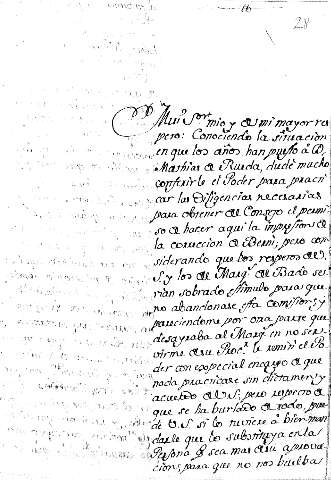 28
Mui Sor mio y de mi mayor res
peto: Conociendo la situacion
en que los años han puesto à D.
Mathias de Rueda, dudé mucho
conferirle el Poder para practi
car las diligencias necesarias
para obtener del Consejo el permi
so de hacer aqui la impression de
la coreccion de Berni; pero con
siderando que los respetos de V.
S. y los del Marqs. de se
rian sobrado estimulo para que
no abandonase esta Comision; y
pareciendome por otra parte que
desayraba al Marqs. en no ser
virme de su Procr. le remiti el Po
der con especial encargo de que
nada practicase sin dictamen, y
acuerdo de V.S.; pero respecto de
que se ha burlado de todo, pue
de V.S. si lo tuviere à bien man
darle que lo substituya en la
Persona q. sea mas de su aprova
cion, para que no nos buelba